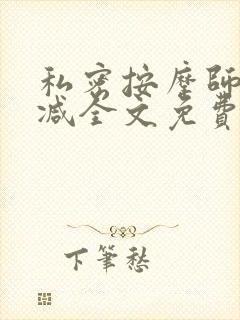 私密按摩師
减全文免費
下筆愁